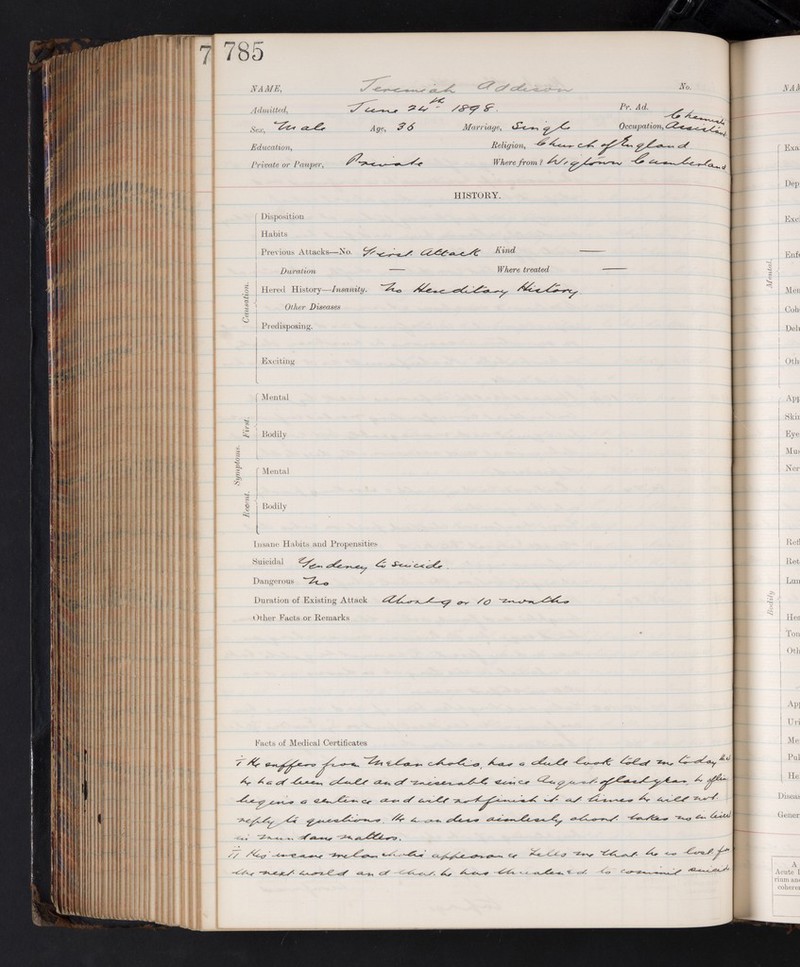 7 785
NAME, Jeremiah Addison No.
Admitted, June 24th 1898. Pr. Ad.
Sex, Male Age, 36 Marriage, Single Occupation, Chemists Assistant
Education, Religion, Church of England
Private or Pauper, Private Where from? Wigtown Cumberland
HISTORY.
Disposition
Habits
Previous Attacks—No. First Attack Kind —
Duration — Where treated —
Hered. History—Insanity. No Hereditary History
Other Diseases
Causation.
Predisposing.
Exciting
Mental
First.
Bodily
Symptoms.
Mental
Recent.
Bodily
Insane Habits and Propensities
Suicidal Tendency to Suicide.
Dangerous No
Duration of Existing Attack About 9 or 10 months
Other Facts or Remarks
Facts of Medical Certificates
I He suffers from Melancholia, has a dull look told me today that
he had been dull and miserable since August of last year he often
begins a sentence and will not finish it at times he will not
reply to questions. He wanders aimlessly about takes no interest
in mundane matters.
II His insane melancholic appearance tells me that he is lost for
the next world and that he has threatened to commit suicide
NAM
Exa
Dep
Exc
Mental.
Men
Coh
Oth
App
Skin
Eye
Mus
Ner
Refl
Ret
Bodily
Oth
App
Uri
Pul
Diseas
Gener
A
Acute
rium an
cohere